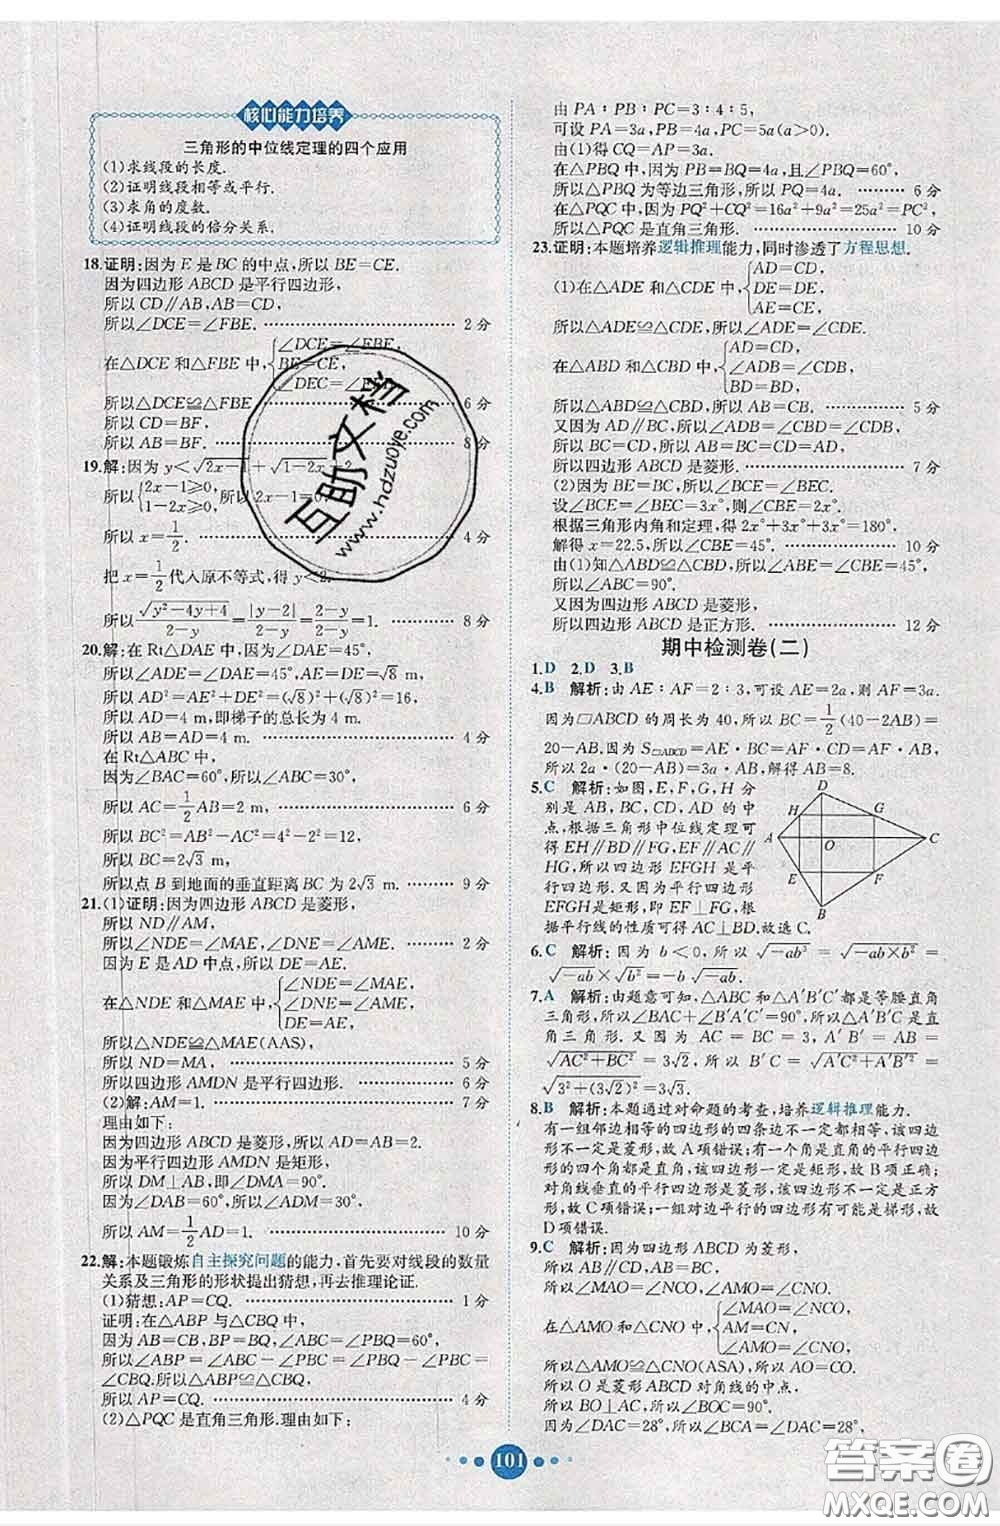 核心能力培养
三角形的中位线定理的四个应用
(1)求线段的长度.
(2)证明线段相等或平行.
(3)求角的度数.
(4)证明线段的倍分关系.
18.证明:因为 E 是 BC 的中点,所以 BE=CE.
因为四边形 ABCD 是平行四边形,
所以 CD∥AB,AB=CD,
所以∠DCE=∠FBE. 2 分
在△DCE 和△FBE 中,{∠DCE=∠FBE,
BE=CE,
∠DEC=∠
所以△DCE≌△FBE 6 分
所以 CD=BF.
所以 AB=BF. 8 分
19.解:因为 y<√(2x-1)+√(1-2x)+2
所以{2x-1≥0, 1-2x≥0, 所以 2x-1=0
所以 x=1/2. 4 分
把 x=1/2 代入原不等式,得 y<2.
所以 √(y²-4y+4)/(2-y)=|y-2|/(2-y)=(2-y)/(2-y)=1. 8 分
20.解:在 Rt△DAE 中,∠DAE=45°,
所以∠ADE=∠DAE=45°,AE=DE=√8 m,
所以 AD²=AE²+DE²=(√8)²+(√8)²=16,
所以 AD=4 m,即梯子的总长为 4 m.
所以 AB=AD=4 m. 4 分
在 Rt△ABC 中,
因为∠BAC=60°,所以∠ABC=30°,
所以 AC=1/2AB=2 m, 6 分
所以 BC²=AB²-AC²=4²-2²=12,
所以 BC=2√3 m,
所以点 B 到地面的垂直距离 BC 为 2√3 m. 9 分
21.(1)证明:因为四边形 ABCD 是菱形,
所以 ND∥AM,
所以∠NDE=∠MAE,∠DNE=∠AME. 2 分
因为 E 是 AD 中点,所以 DE=AE.
在△NDE 和△MAE 中,{∠NDE=∠MAE,
∠DNE=∠AME,
DE=AE,
所以△NDE≌△MAE(AAS),
所以 ND=MA, 5 分
所以四边形 AMDN 是平行四边形. 6 分
(2)解:AM=1. 7 分
理由如下:
因为四边形 ABCD 是菱形,所以 AD=AB=2.
因为平行四边形 AMDN 是矩形,
所以 DM⊥AB,即∠DMA=90°.
因为∠DAB=60°,所以∠ADM=30°,
所以 AM=1/2AD=1. 10 分
22.解:本题锻炼自主探究问题的能力,首先要对线段的数量
关系及三角形的形状提出猜想,再去推理论证.
(1)猜想:AP=CQ. 1 分
证明:在△ABP 与△CBQ 中,
因为 AB=CB,BP=BQ,∠ABC=∠PBQ=60°,
所以∠ABP=∠ABC-∠PBC=∠PBQ-∠PBC=
∠CBQ.所以△ABP≌△CBQ.
所以 AP=CQ. 4 分
(2)△PQC 是直角三角形.理由如下:
由 PA∶PB∶PC=3∶4∶5,
可设 PA=3a,PB=4a,PC=5a(a>0),
由(1)得 CQ=AP=3a.
在△PBQ 中,因为 PB=BQ=4a,且∠PBQ=60°,
所以△PBQ 为等边三角形,所以 PQ=4a. 6 分
在△PQC 中,因为 PQ²+CQ²=16a²+9a²=25a²=PC²,
所以△PQC 是直角三角形. 10 分
23.证明:本题培养逻辑推理能力,同时渗透了方程思想.
(1)在△ADE 和△CDE 中,{AD=CD,
DE=DE,
AE=CE,
所以△ADE≌△CDE,所以∠ADE=∠CDE.
在△ABD 和△CBD 中,{AD=CD,
∠ADB=∠CDB,
BD=BD,
所以△ABD≌△CBD,所以 AB=CB. 5 分
又因为 AD∥BC,所以∠ADB=∠CBD=∠CDB,
所以 BC=CD,所以 AB=BC=CD=AD,
所以四边形 ABCD 是菱形. 7 分
(2)因为 BE=BC,所以∠BCE=∠BEC.
设∠CBE=2x°,∠BEC=3x°,则∠BCE=3x°.
根据三角形内角和定理,得 2x°+3x°+3x°=180°,
解得 x=22.5,所以∠CBE=45°. 10 分
由(1)知△ABD≌△CBD,所以∠ABE=∠CBE=45°,
所以∠ABC=90°.
又因为四边形 ABCD 是菱形,
所以四边形 ABCD 是正方形. 12 分
期中检测卷(二)
1.D 2.D 3.B
4.B 解析:由 AE∶AF=2∶3,可设 AE=2a,则 AF=3a.
因为▱ABCD 的周长为 40,所以 BC=1/2(40-2AB)=
20-AB.因为 S▱ABCD=AE·BC=AF·CD,
所以 2a·(20-AB)=3a·AB,解得 AB=8.
5.C 解析:如图,E,F,G,H 分
别是 AB,BC,CD,AD 的中
点,根据三角形中位线定理可
得 EH∥BD∥FG,EF∥AC∥
HG,所以四边形 EFGH 是平
行四边形.又因为平行四边形
EFGH 是矩形,即 EF⊥FG,根
据平行线的性质可得 AC⊥BD.故选 C.
D
H
G
A
O
C
E
F
B
6.C 解析:因为 b<0,所以 √(-ab³)=√(-ab×b²)=
√(-ab)×√(b²)=-b√(-ab).
7.A 解析:由题意可知,△ABC 和△A′B′C′都是等腰直角
三角形,所以∠BAC+∠B′A′C′=90°,所以△A′B′C 是直
角三角形.又因为 AC=BC=3,A′B′=AB=
√(AC²+BC²)=3√2,所以 B′C=√(A′C²+A′B′²)=
√(3²+(3√2)²)=3√3.
8.B 解析:本题通过对命题的考查,培养逻辑推理能力.
有一组邻边相等的四边形的四条边不一定都相等,该四边
形不一定是菱形,故 A 项错误;有一个角是直角的平行四边
形的四个角都是直角,该四边形一定是矩形,故 B 项正确;
对角线垂直的平行四边形是菱形,该四边形不一定是正方
形,故 C 项错误;一组对边平行的四边形有可能是梯形,故
D 项错误.
9.C 解析:因为四边形 ABCD 为菱形,
所以 AB∥CD,AB=BC,
所以∠MAO=∠NCO,∠AMO=∠CNO.
在△AMO 和△CNO 中,{∠MAO=∠NCO,
AM=CN,
∠AMO=∠CNO,
所以△AMO≌△CNO(ASA),所以 AO=CO.
所以 O 是菱形 ABCD 对角线的中点,
所以 BO⊥AC,所以∠BOC=90°.
因为∠DAC=28°,所以∠BCA=∠DAC=28°,
101
互助文档
www.hdzuoye.com
答案卷
MXQE.COM